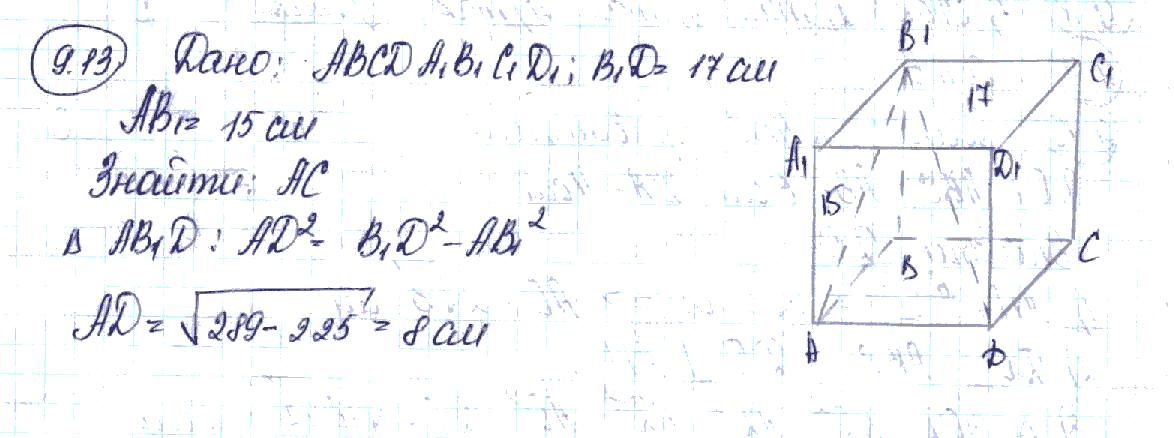 9.13 Дано: ABCDA₁B₁C₁D₁; B₁D = 17 см
AB₁ = 15 см
Знайти: AC
Δ AB₁D: AD² = B₁D² - AB₁²
AD = √289 - 225 = 8 см
B₁
C₁
17
A₁
D₁
15
B
C
A
D